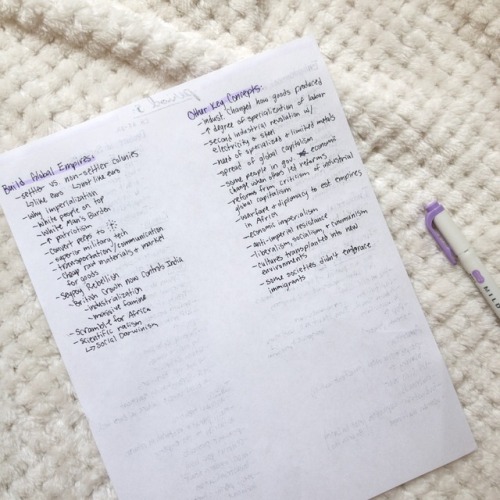 Build Global Empires:
- settler vs non-settler colonies
↳like eurs ↳not like eurs
- Why Imperialization
- white people on top
- White Man's Burden
- ↑ patriotism
- convert peeps to
- superior military tech
- transportation/communication
- cheap raw materials + market
for goods
- Sepoy Rebellion
- British Crown now controls India
- industrialization
- massive famine
- Scramble for Africa
- scientific racism
↳ Social Darwinism
Other Key Concepts:
- indust. changed how goods produced
- ↑ degree of specialization of labor
- second industrial revolution w/
electricity + steel
- need of specialized + limited metals
- spread of global capitalism
- some people in gov economic
change when others led reforms
- reforms from criticism of industrial
global capitalism
- warfare + diplomacy to est empires
in Africa
- economic imperialism
- anti-imperial resistance
- liberalism, socialism, + communism
- cultures transplanted into new
environments
- some societies didn't embrace
immigrants